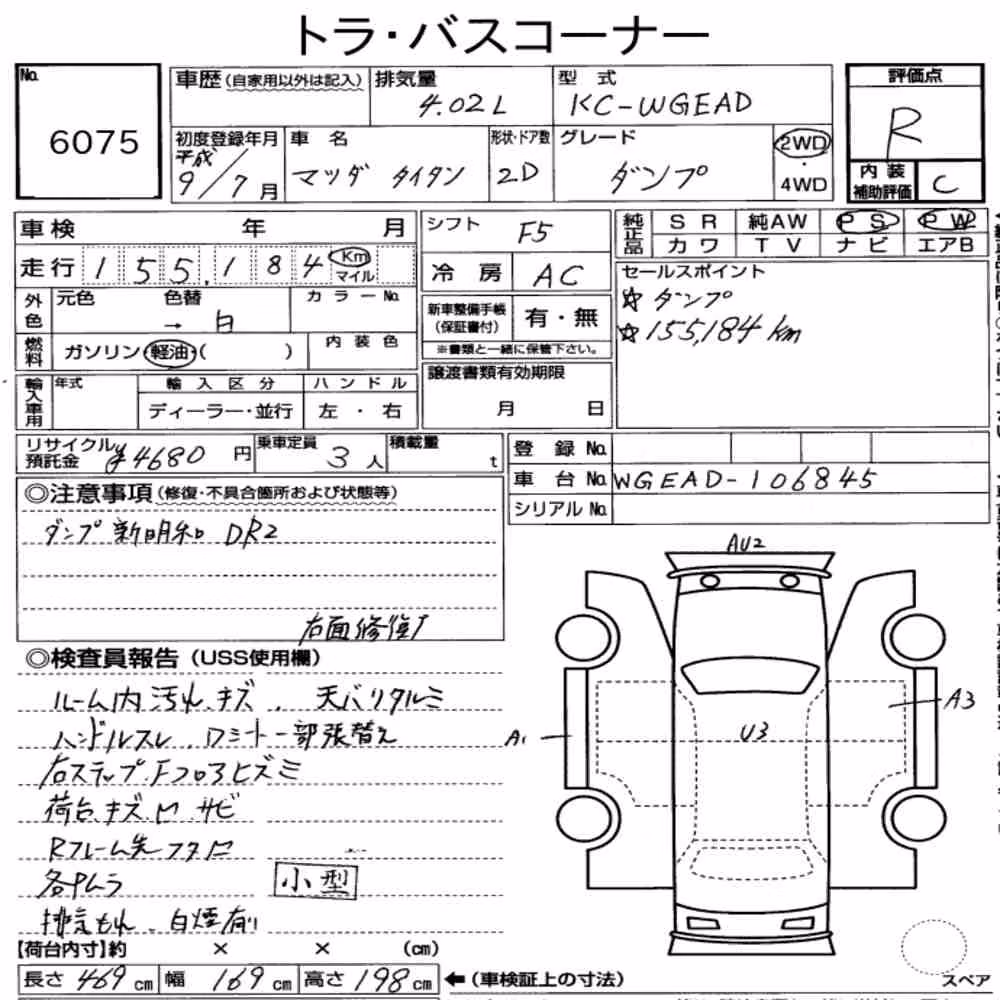 トラ・バスコーナー
No.
6075
車歴(自家用以外は記入)
排気量
4.02L
型 式
KC-WGEAD
評価点
R
初度登録年月
平成
9/7月
車 名
マツダ タイタン
形状・ドア数
2D
グレード
ダンプ
2WD
・
4WD
内 装
補助評価
C
車検 年 月
シフト
F5
純正品
SR 純AW PS PW
カワ TV ナビ エアB
走行 155,184 Km
マイル
冷 房
AC
セールスポイント
☆ ダンプ
☆155,184km
外色
元色 色替
→ 白
カラーNo.
新車整備手帳
(保証書付)
有・無
※書類と一緒に保管下さい。
燃料
ガソリン・軽油・( )
内装色
輸入車用
年式
輸入区分
ディーラー・並行
ハンドル
左・右
譲渡書類有効期限
月 日
リサイクル
預託金
¥4680円
乗車定員
3人
積載量
t
登 録 No.
車 台 No.
WGEAD-106845
シリアル No.
◎注意事項(修復・不具合箇所および状態等)
ダンプ 新明和 DR2
右面修復歴
◎検査員報告(USS使用欄)
ルーム内 汚れ.キズ. 天バリタルミ
ハンドルスレ.ロミート一部張替え
右ステップ.Fフロアヒズミ
荷台.キズ.凹.サビ
Rフレーム先フタ凹
各Pムラ
小型
排気もれ.白煙有り
AU2
A3
U3
A1
【荷台内寸】約 × × (cm)
長さ 469cm 幅 169cm 高さ 198cm
←(車検証上の寸法)
スペア